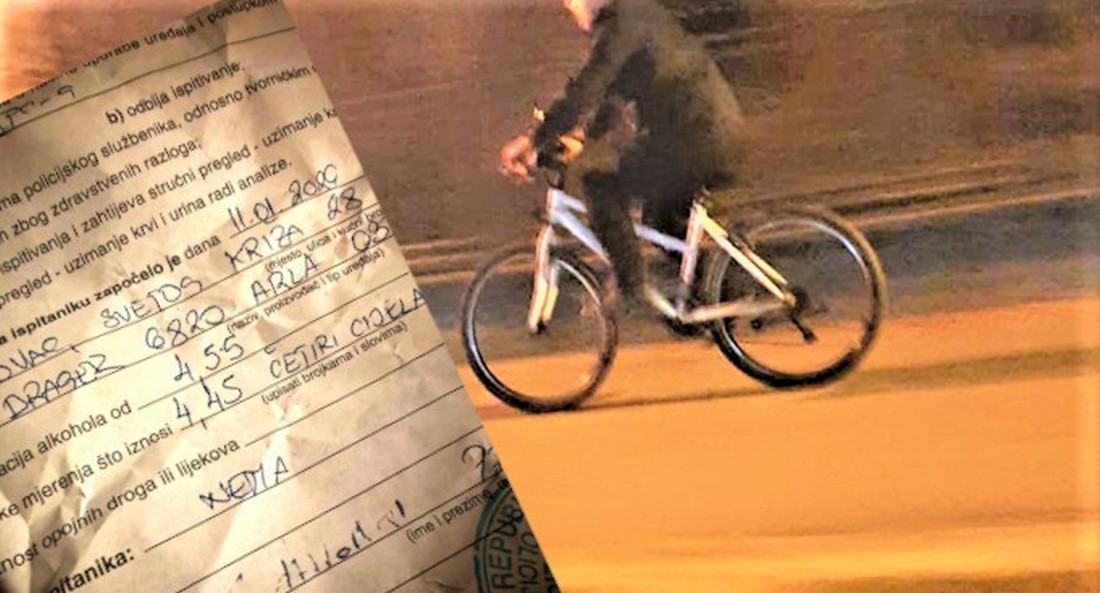 uporabe uređaja i postupkom
b) odbija ispitivanje;
ma policijskog službenika, odnosno tvorničkim
zbog zdravstvenih razloga;
ispitivanja i zahtijeva stručni pregled - uzimanje
pregled - uzimanje krvi i urina radi analize.
a ispitaniku započelo je dana 11.01.2020
SVETOG KRIŽA 28
(mjesto, ulica i kućni broj
DRAGER 6820 ARLA 03
(naziv, proizvođač i tip uređaja)
acija alkohola od 4,55
ke mjerenja što iznosi 4,45 ČETIRI CIJELA
(upisati brojkama i slovima)
nost opojnih droga ili lijekova
NEMA
(ime i prezime
pitanika:
REPUB